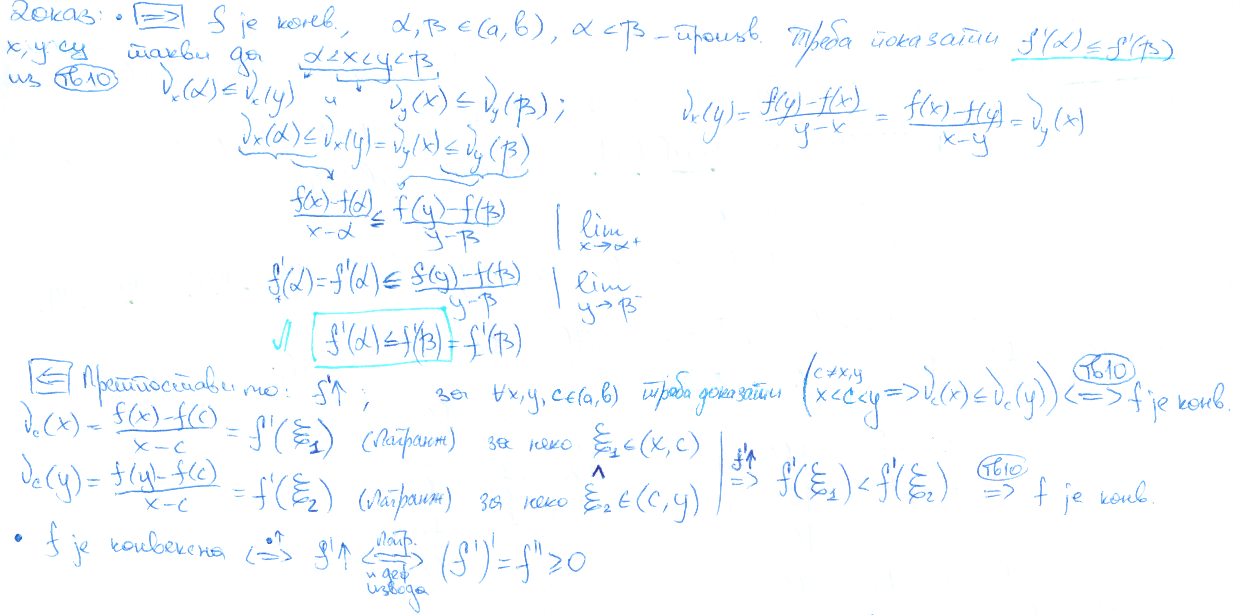 Доказ: • [⇒] f је конв., α, β ∈ (a, b), α < β – произв. Треба показати f'(α) ≤ f'(β)
x, y су такви да α < x < y < β
из (ТВ10) ν_x(α) ≤ ν_x(y) и ν_y(x) ≤ ν_y(β); ν_x(y) = (f(y) − f(x))/(y − x) = (f(x) − f(y))/(x − y) = ν_y(x)
ν_x(α) ≤ ν_x(y) = ν_y(x) ≤ ν_y(β)
(f(x) − f(α))/(x − α) ≤ (f(y) − f(β))/(y − β) | lim x→α⁺
f'₊(α) = f'(α) ≤ (f(y) − f(β))/(y − β) | lim y→β⁻
√ f'(α) ≤ f'(β) = f'₋(β)
[⇐] Претпоставимо: f'↑; за ∀x, y, c ∈ (a, b) треба доказати (c ≠ x, y x < c < y ⇒ ν_c(x) ≤ ν_c(y)) ⇔ (ТВ10) f је конв.
ν_c(x) = (f(x) − f(c))/(x − c) = f'(ξ₁) (Лагранж) за неко ξ₁ ∈ (x, c)
ν_c(y) = (f(y) − f(c))/(x − c) = f'(ξ₂) (Лагранж) за неко ξ₂ ∈ (c, y) | f'↑ ⇒ f'(ξ₁) < f'(ξ₂) (ТВ10) ⇒ f је конв.
• f је конвексна ⇔ f'↑ ⇔ Лагр. и деф извода (f')' = f'' ≥ 0